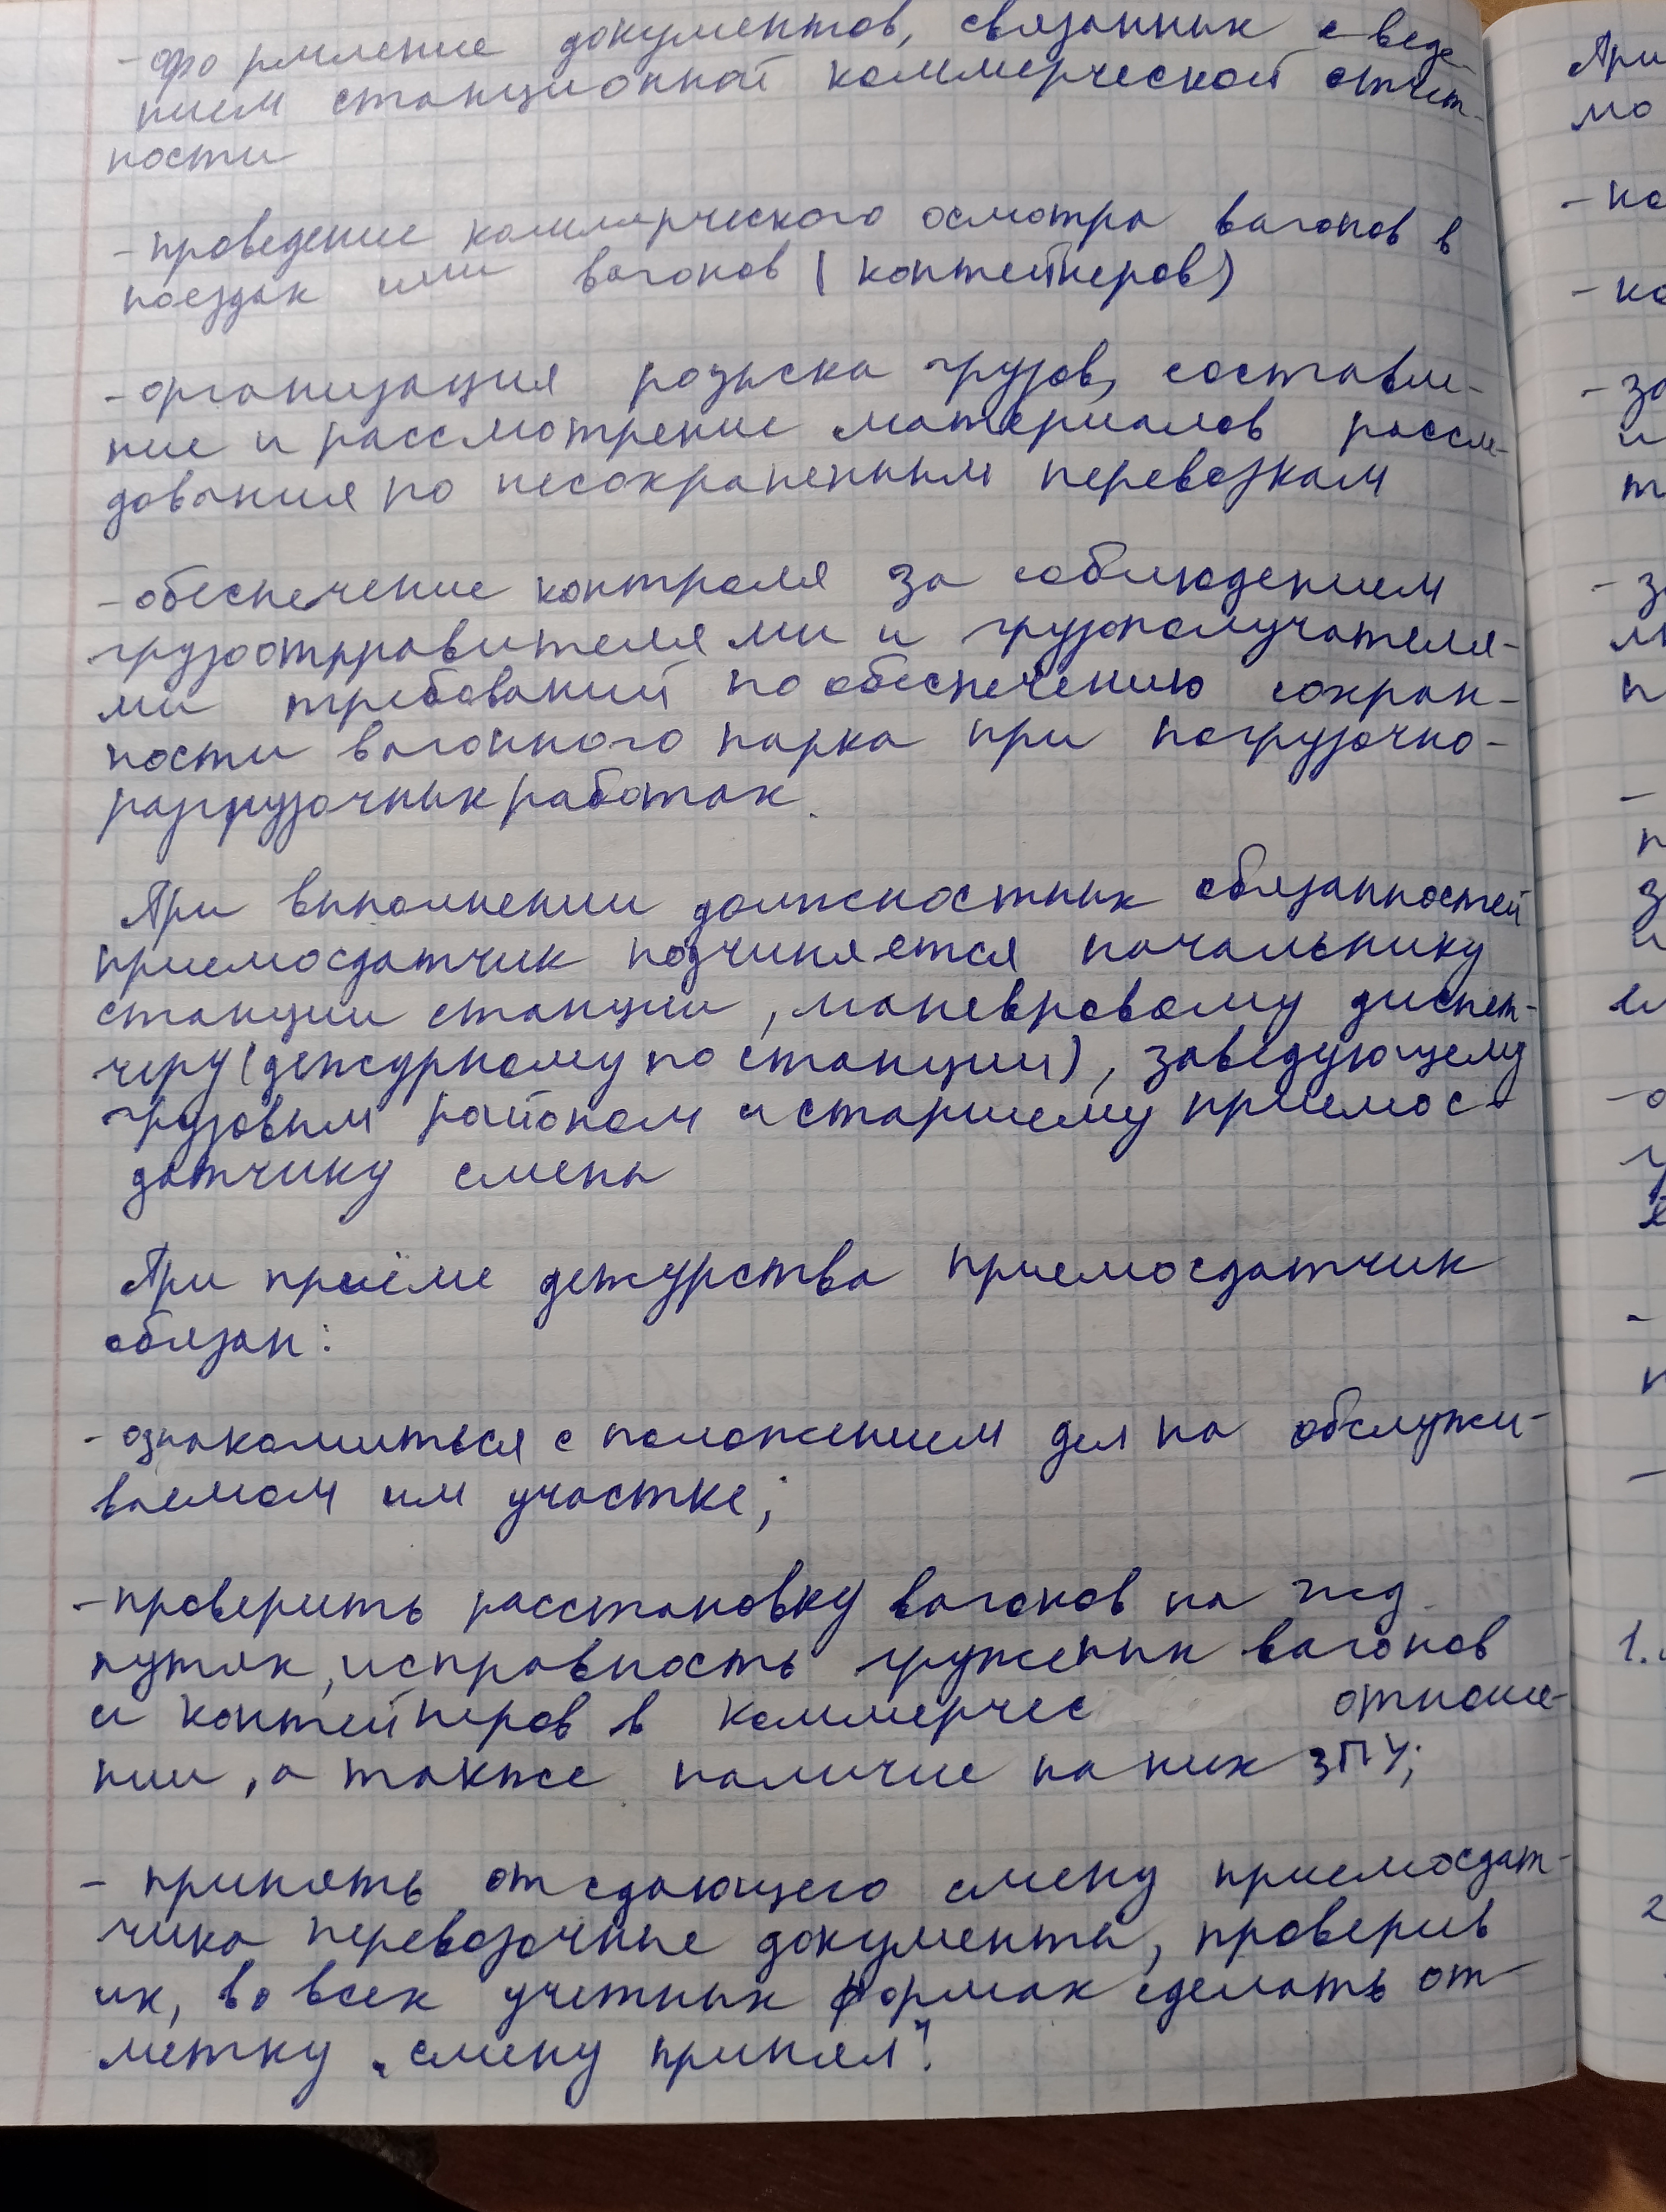 - формление документов, связанных с веде-
нием станционной коммерческой отчет-
ности
- проведение коммерческого осмотра вагонов в
поездах или вагонов (контейнеров)
- организация розыска грузов, составле-
ние и рассмотрение материалов рассле-
дования по несохраненным перевозкам
- обеспечение контроля за соблюдением
грузоотправителями и грузополучателя-
ми требований по обеспечению сохран-
ности вагонного парка при погрузочно-
разгрузочных работах.
При выполнении должностных обязанностей
приемосдатчик подчиняется начальнику
станции станции, маневровому диспет-
черу (дежурному по станции), заведующему
грузовым районом и старшему приемос-
датчику смены
При приёме дежурства приемосдатчик
обязан:
- ознакомиться с положением дел на обслужи-
ваемом им участке;
- проверить расстановку вагонов на жд.
путях, исправность груженых вагонов
и контейнеров в коммерчес отноше-
нии, а также наличие на них ЗПУ;
- принять от сдающего смену приемосдат-
чика перевозочные документы, проверив
их, во всех учетных формах сделать от-
метку „смену принял".
При
мо
- на
- ко
- за
и
т
- з
п
-
п
з
и
-
-
1.
2